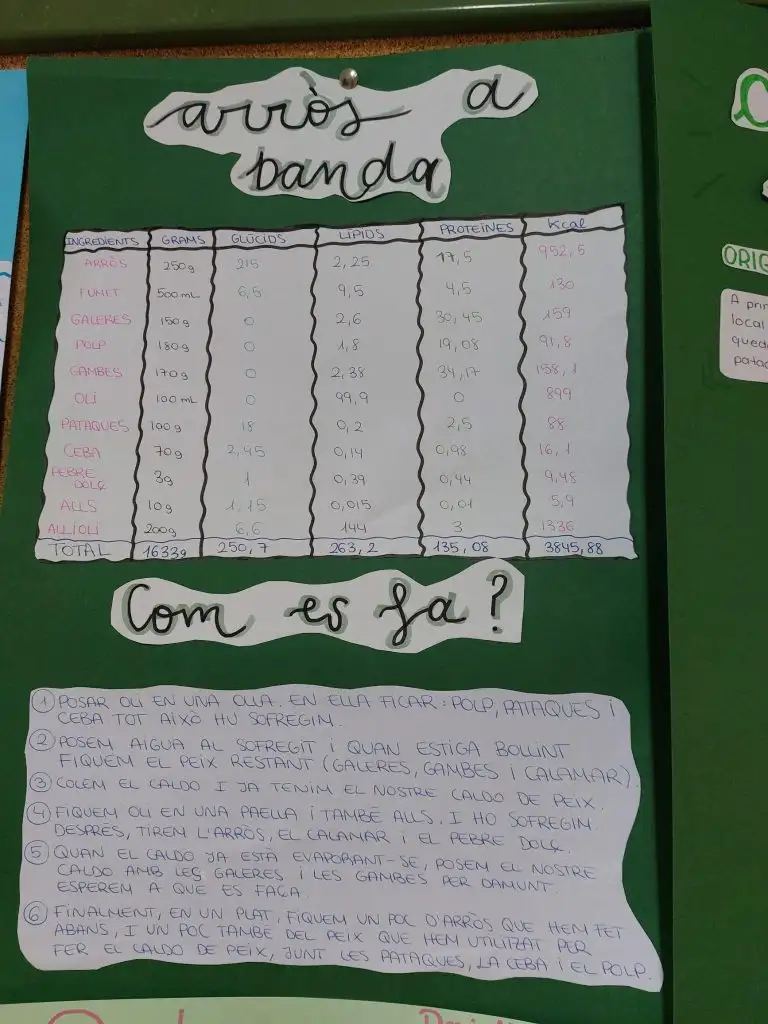 arròs a
banda
INGREDIENTS GRAMS GLÚCIDS LÍPIDS PROTEÏNES Kcal
ARRÒS 250g 215 2,25 17,5 952,5
FUMET 500mL 6,5 9,5 4,5 130
GALERES 150g 0 2,6 30,45 159
POLP 180g 0 1,8 19,08 91,8
GAMBES 170g 0 2,38 34,17 158,1
OLI 100mL 0 99,9 0 899
PATAQUES 100g 18 0,2 2,5 88
CEBA 70g 2,45 0,14 0,98 16,1
PEBRE
DOLÇ 3g 1 0,39 0,44 9,48
ALLS 10g 1,15 0,015 0,01 5,9
ALLIOLI 200g 6,6 144 3 1336
TOTAL 1633g 250,7 263,2 135,08 3845,88
Com es fa?
1 POSAR OLI EN UNA OLLA. EN ELLA FICAR: POLP, PATAQUES i
CEBA TOT AIXÒ HU SOFREGIM.
2 POSEM AIGUA AL SOFREGIT i QUAN ESTIGA BOLLINT
FIQUEM EL PEIX RESTANT (GALERES, GAMBES i CALAMAR).
3 COLEM EL CALDO I JA TENIM EL NOSTRE CALDO DE PEIX.
4 FIQUEM OLI EN UNA PAELLA i TAMBÉ ALLS. I HO SOFREGIM.
DESPRÉS, TIREM L'ARRÒS, EL CALAMAR i EL PEBRE DOLÇ.
5 QUAN EL CALDO JA ESTÀ EVAPORANT-SE, POSEM EL NOSTRE
CALDO AMB LES GALERES i LES GAMBES PER DAMUNT.
ESPEREM A QUE ES FAÇA.
6 FINALMENT, EN UN PLAT, FIQUEM UN POC D'ARRÒS QUE HEM FET
ABANS, I UN POC TAMBÉ DEL PEIX QUE HEM UTILITZAT PER
FER EL CALDO DE PEIX, JUNT LES PATAQUES, LA CEBA i EL POLP.
A
local